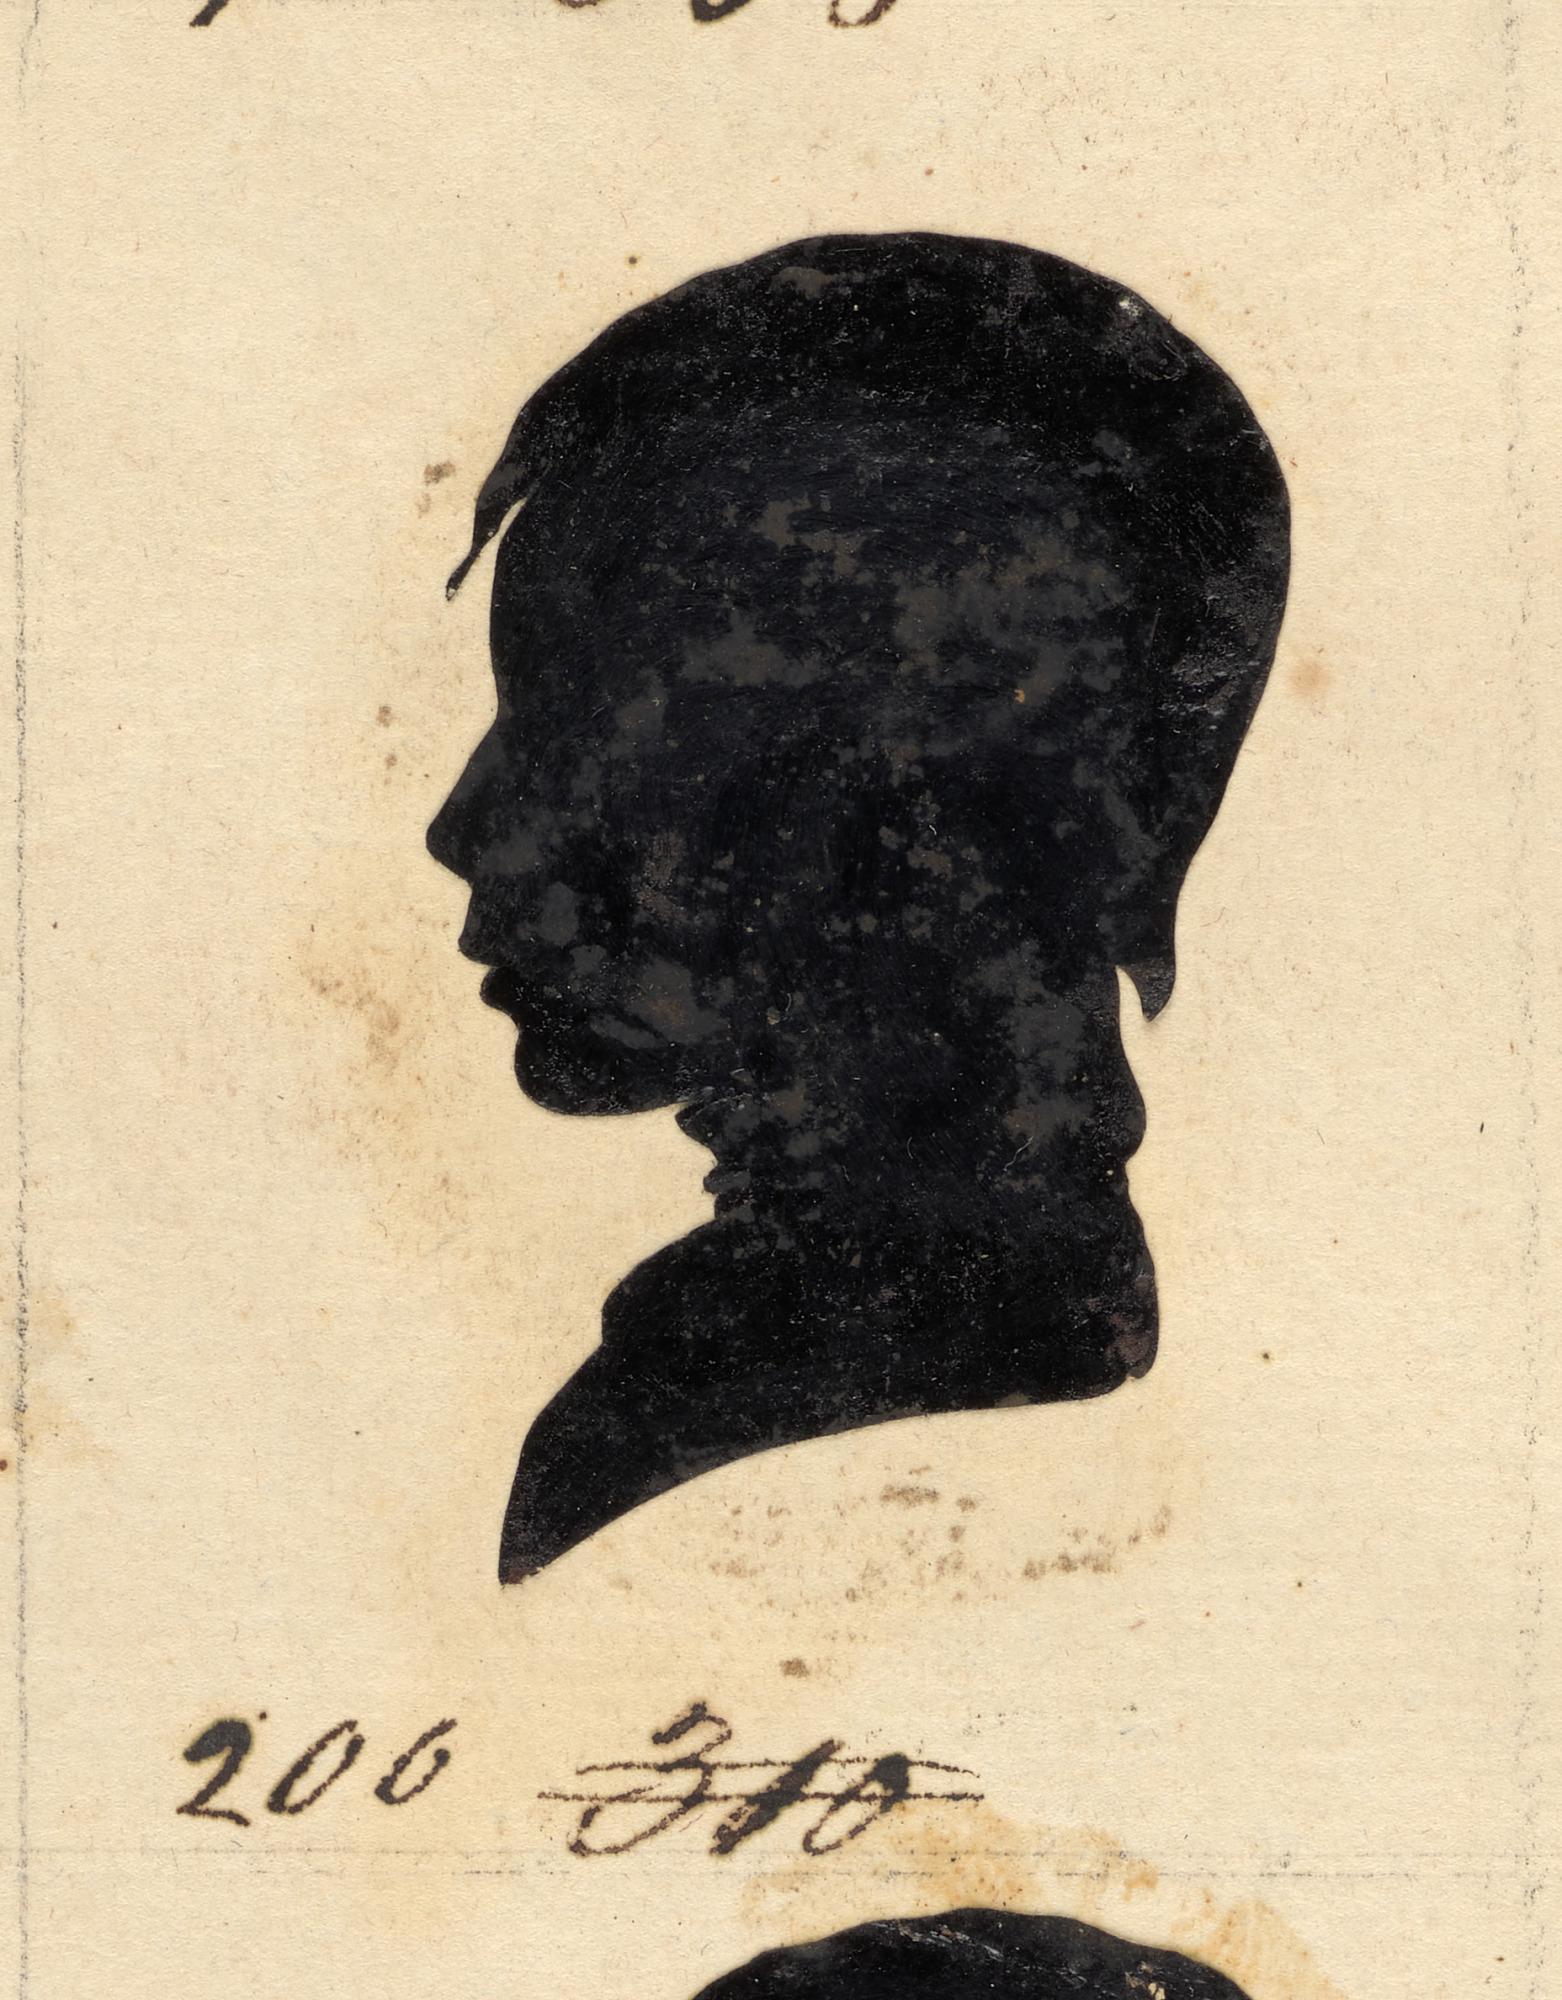 200 310